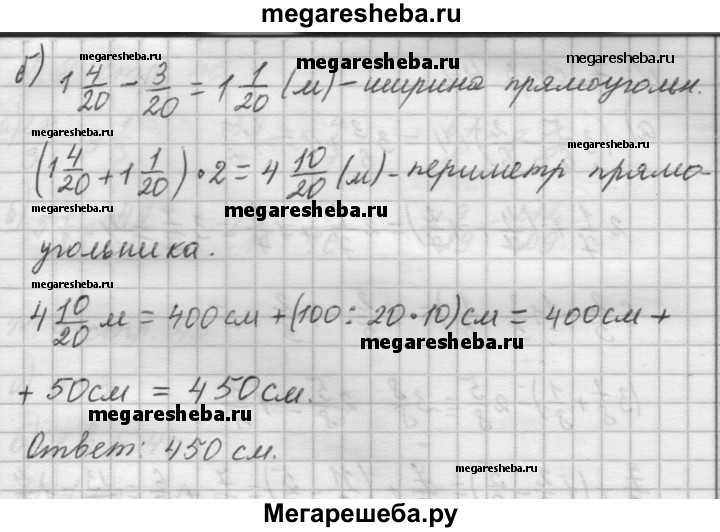 megaresheba.ru
megaresheba.ru megaresheba.ru megaresheba.ru
б) 1 4/20 - 3/20 = 1 1/20 (м) - ширина прямоугольн.
megaresheba.ru
(1 4/20 + 1 1/20) • 2 = 4 10/20 (м) - периметр прямо-
megaresheba.ru megaresheba.ru
угольника.
megaresheba.ru
4 10/20 м = 400 см + (100 : 20 • 10) см = 400 см +
megaresheba.ru
+ 50 см = 450 см.
megaresheba.ru
Ответ: 450 см.
megaresheba.ru
Мегарешеба.ру